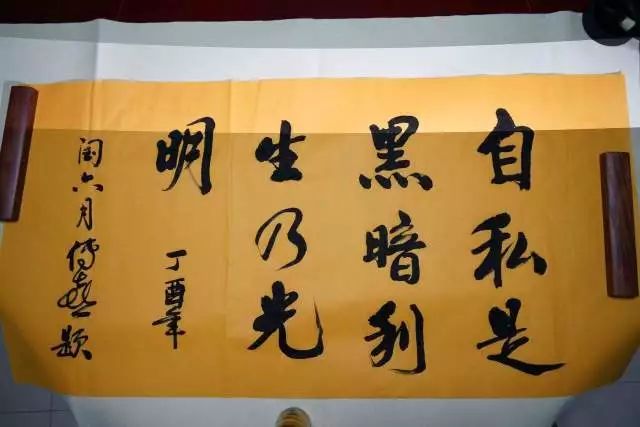 自私是
黑暗利
生乃光
明
丁酉年
闰六月传喜题